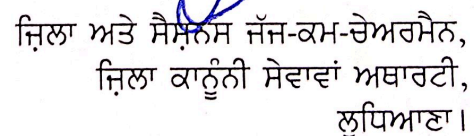 ਜ਼ਿਲਾ ਅਤੇ ਸੈਸ਼ਨਸ ਜੱਜ-ਕਮ-ਚੇਅਰਮੈਨ,
ਜ਼ਿਲਾ ਕਾਨੂੰਨੀ ਸੇਵਾਵਾਂ ਅਥਾਰਟੀ,
ਲੁਧਿਆਣਾ।